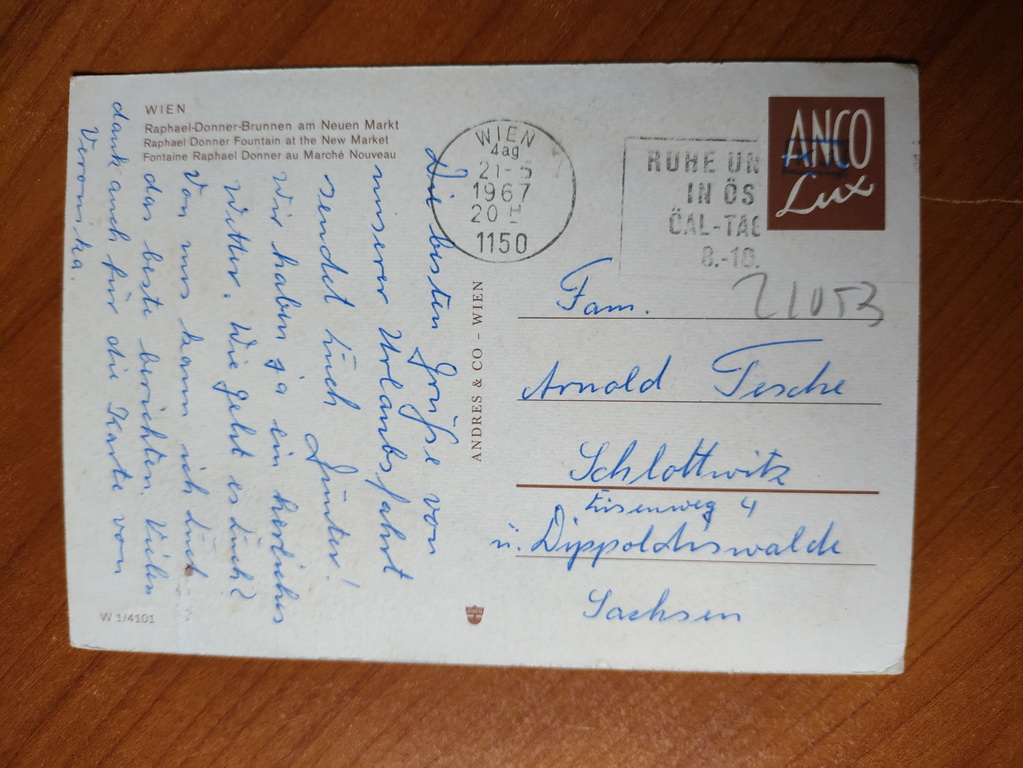 WIEN
Raphael-Donner-Brunnen am Neuen Markt
Raphael Donner Fountain at the New Market
Fontaine Raphael Donner au Marché Nouveau
Die besten Grüße von
unserer Urlaubsfahrt
sendet Euch Günter!
Wir haben ja ein herrliches
Wetter. Wie geht es Euch?
Von uns kann ich Euch
das beste berichten. Vielen
dank auch für die Karte von
Veronika.
W 1/4101
ANDRES & CO - WIEN
WIEN
4ag
21-5
1967
20
1150
RUHE UN
IN ÖS
ÖAL-TAG
8.-10.
ANCO
Lux
21053
Fam.
Arnold Tesche
Schlottwitz
Eisenweg 4
ü. Dippoldiswalde
Sachsen